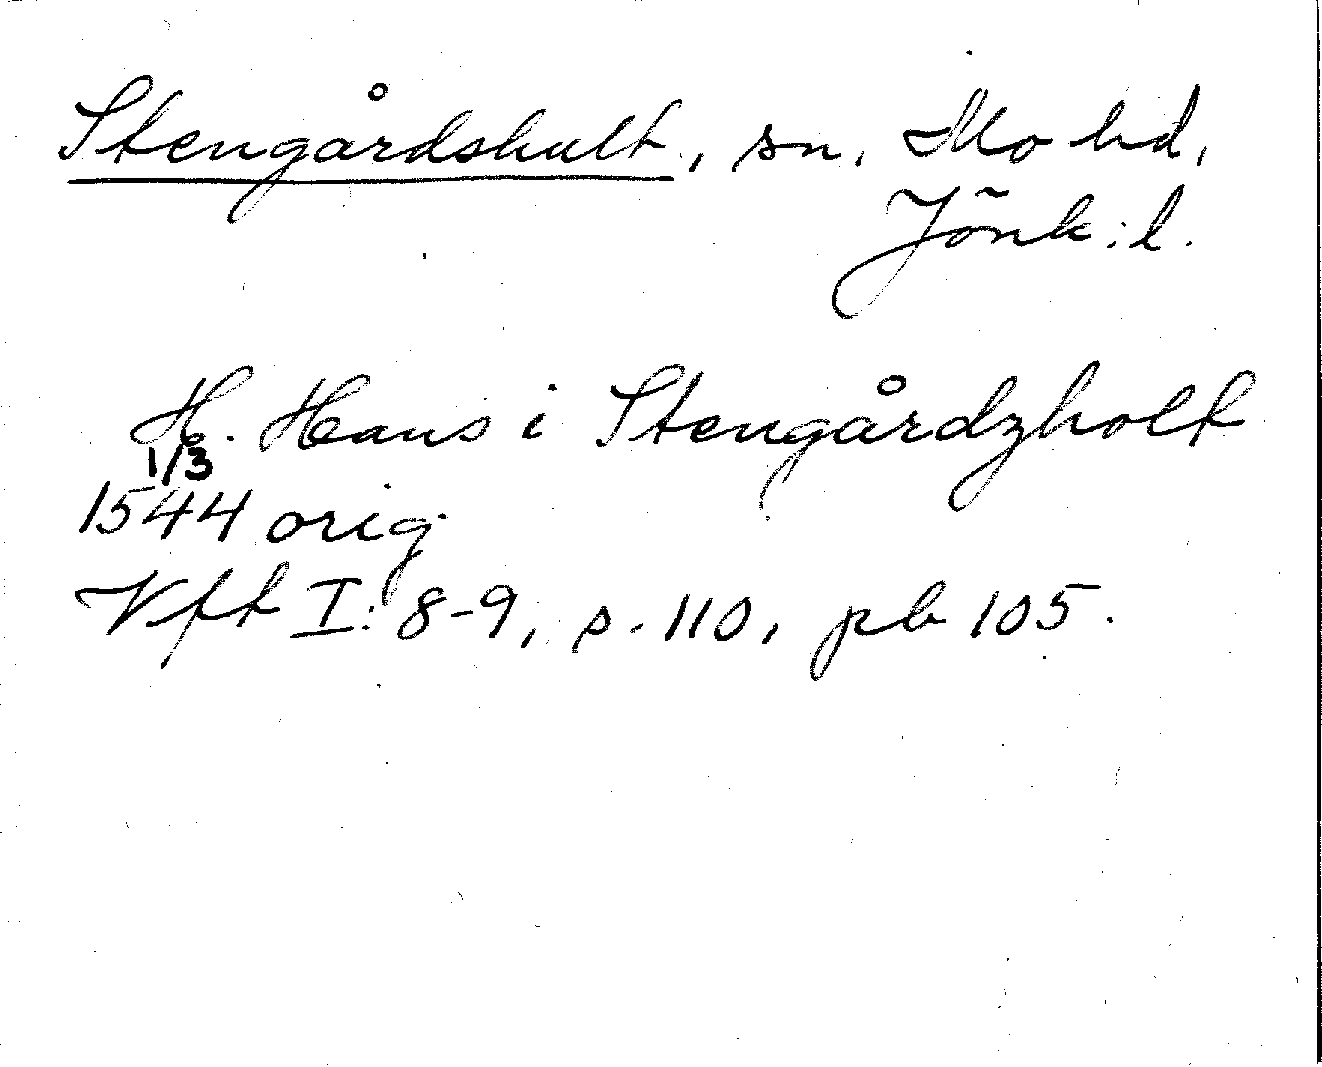 Stengårdshult, sn, Mo hd,
Jönk:l.
H. Hans i Stengårdzholt
1/3
1544 orig
Vft I: 8-9, s. 110, pb 105.